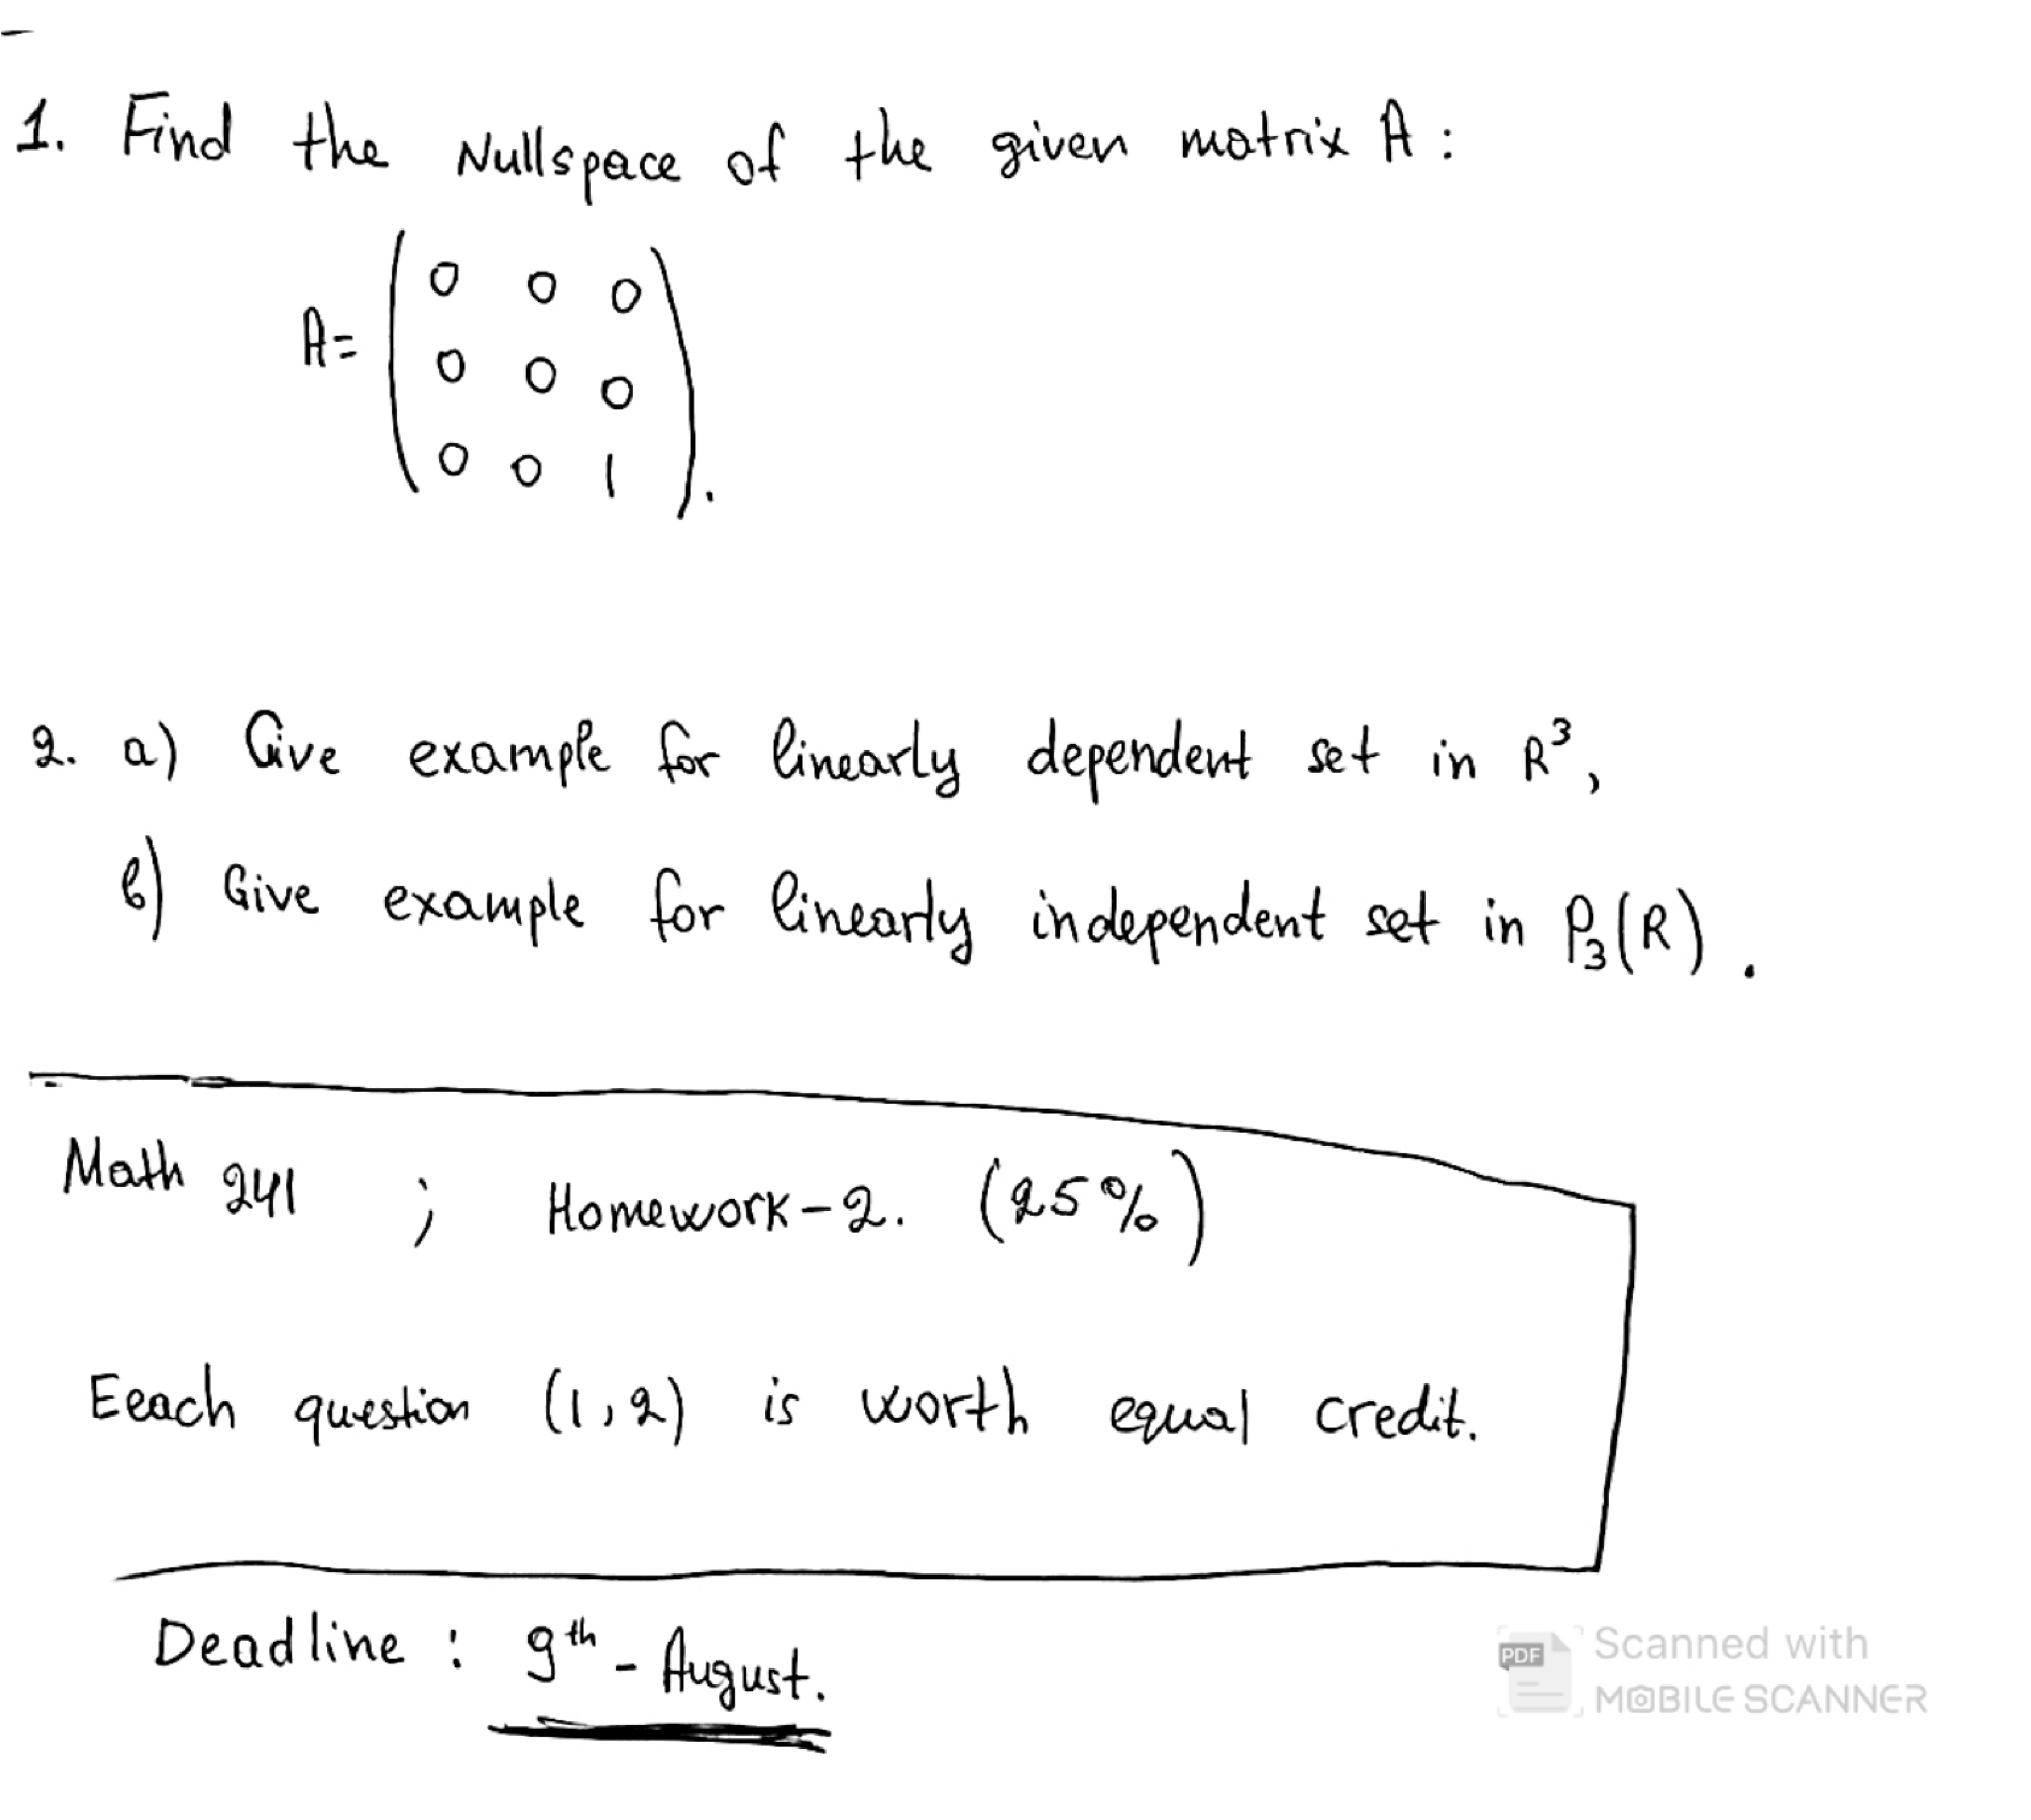 1. Find the Nullspace of the given matrix A :
A= ( 0 0 0
0 0 0
0 0 1 ) .
2. a) Give example for linearly dependent set in R³,
b) Give example for linearly independent set in P₃(R) .
Math 241 ; Homework-2. (25%)
Eeach question (1,2) is worth equal credit.
Deadline : 9th - August.
PDF Scanned with
MOBILE SCANNER